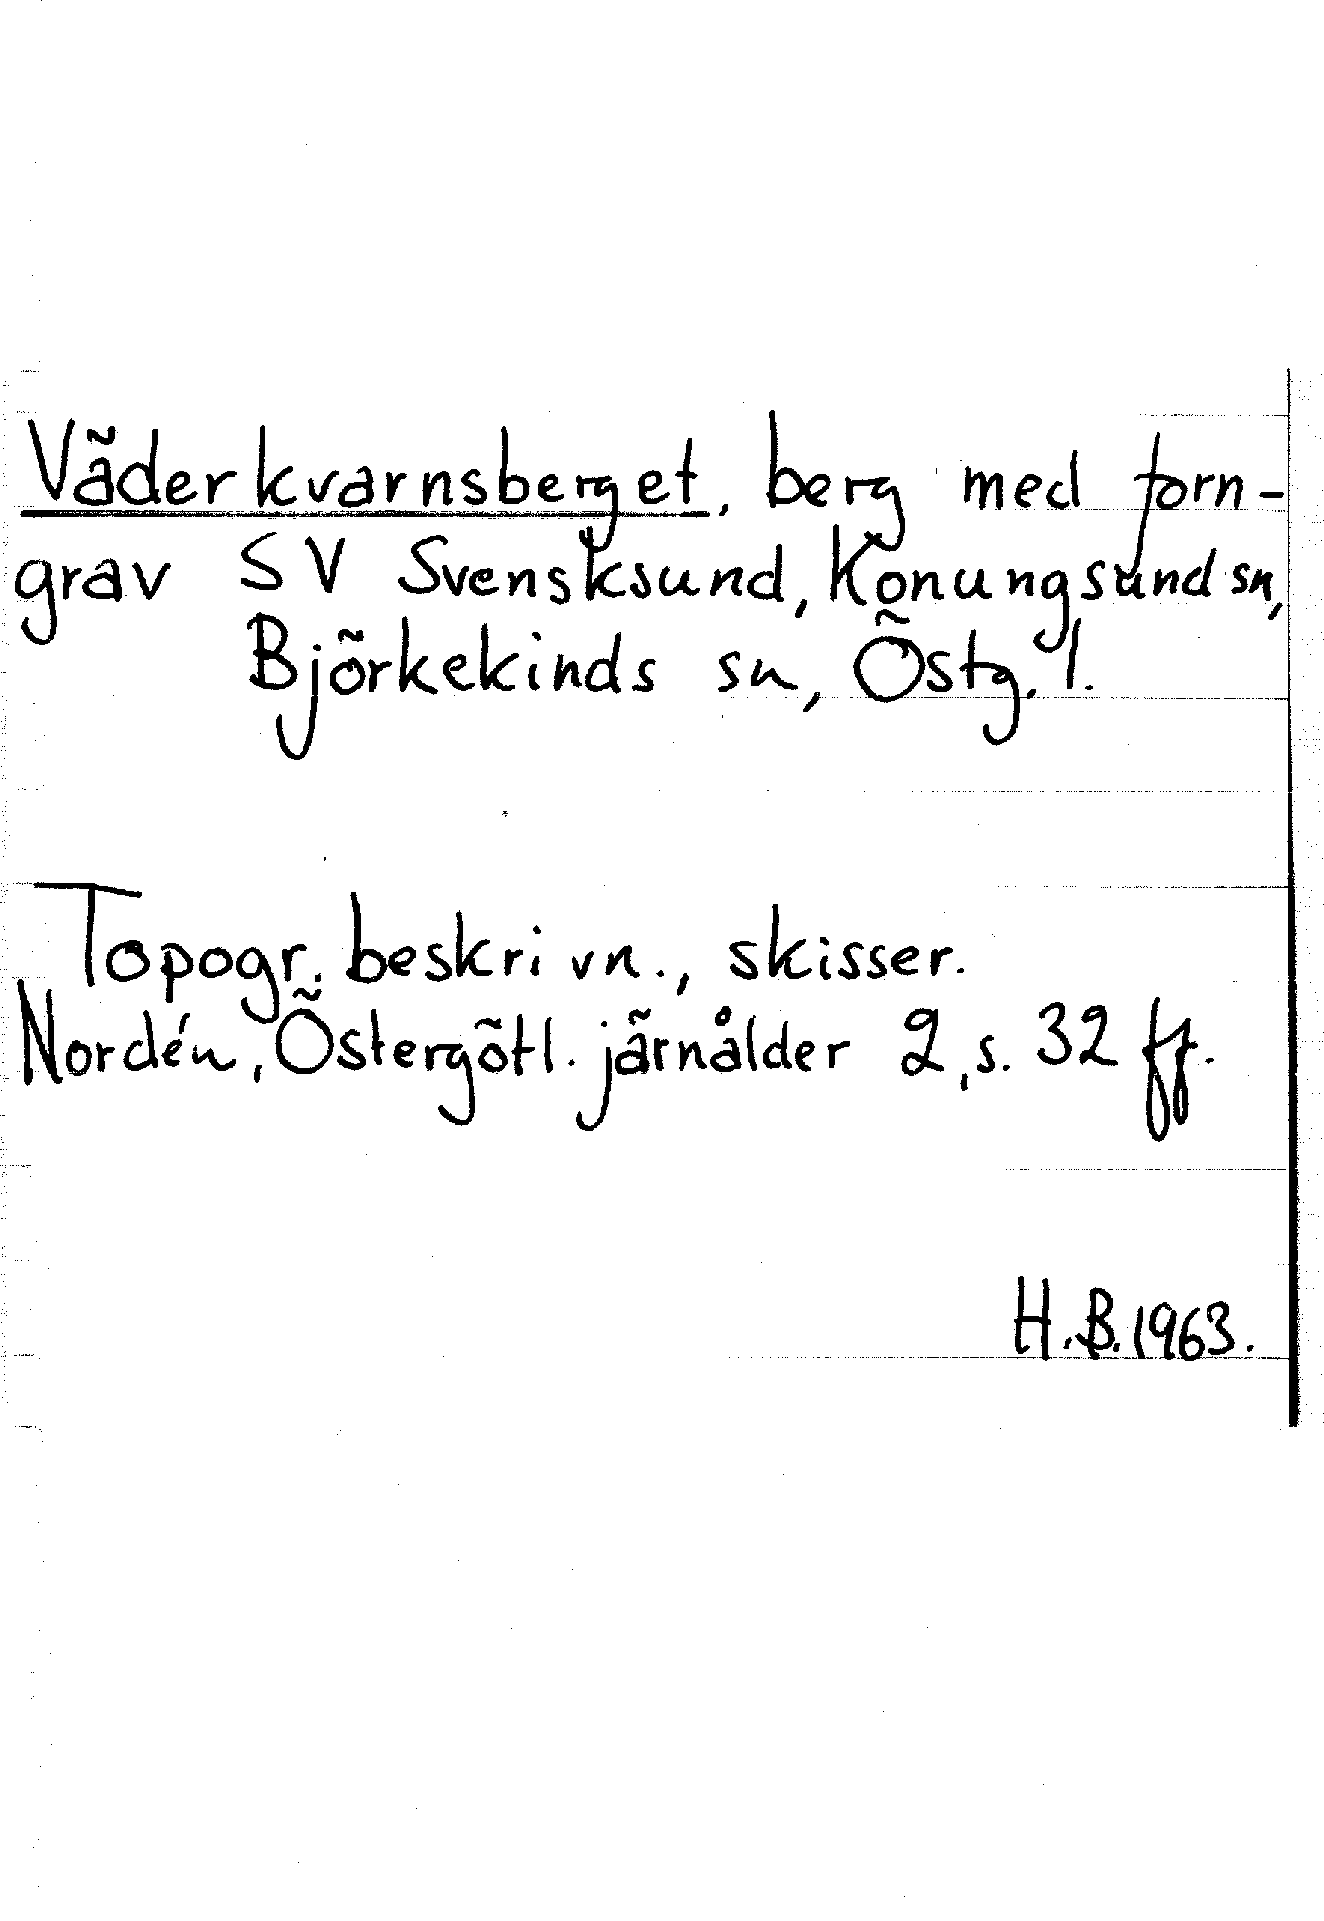 Väderkvarnsberget, berg med forn-
grav SV Svensksund, Konungsund sn,
Björkekinds sn, Östg. l.
Topogr. beskrivn., skisser.
Nordén, Östergötl. järnålder 2, s. 32 ff.
H.B. 1963.